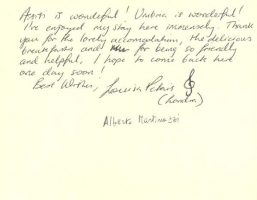 is wonderful! Umbria is wonderful!
I've enjoyed my stay here immensely. Thank
you for the lovely accomodation, the delicious
breakfasts and for being so friendly
and helpful. I hope to come back here
one day soon!
Best Wishes,
(London)
Alberto